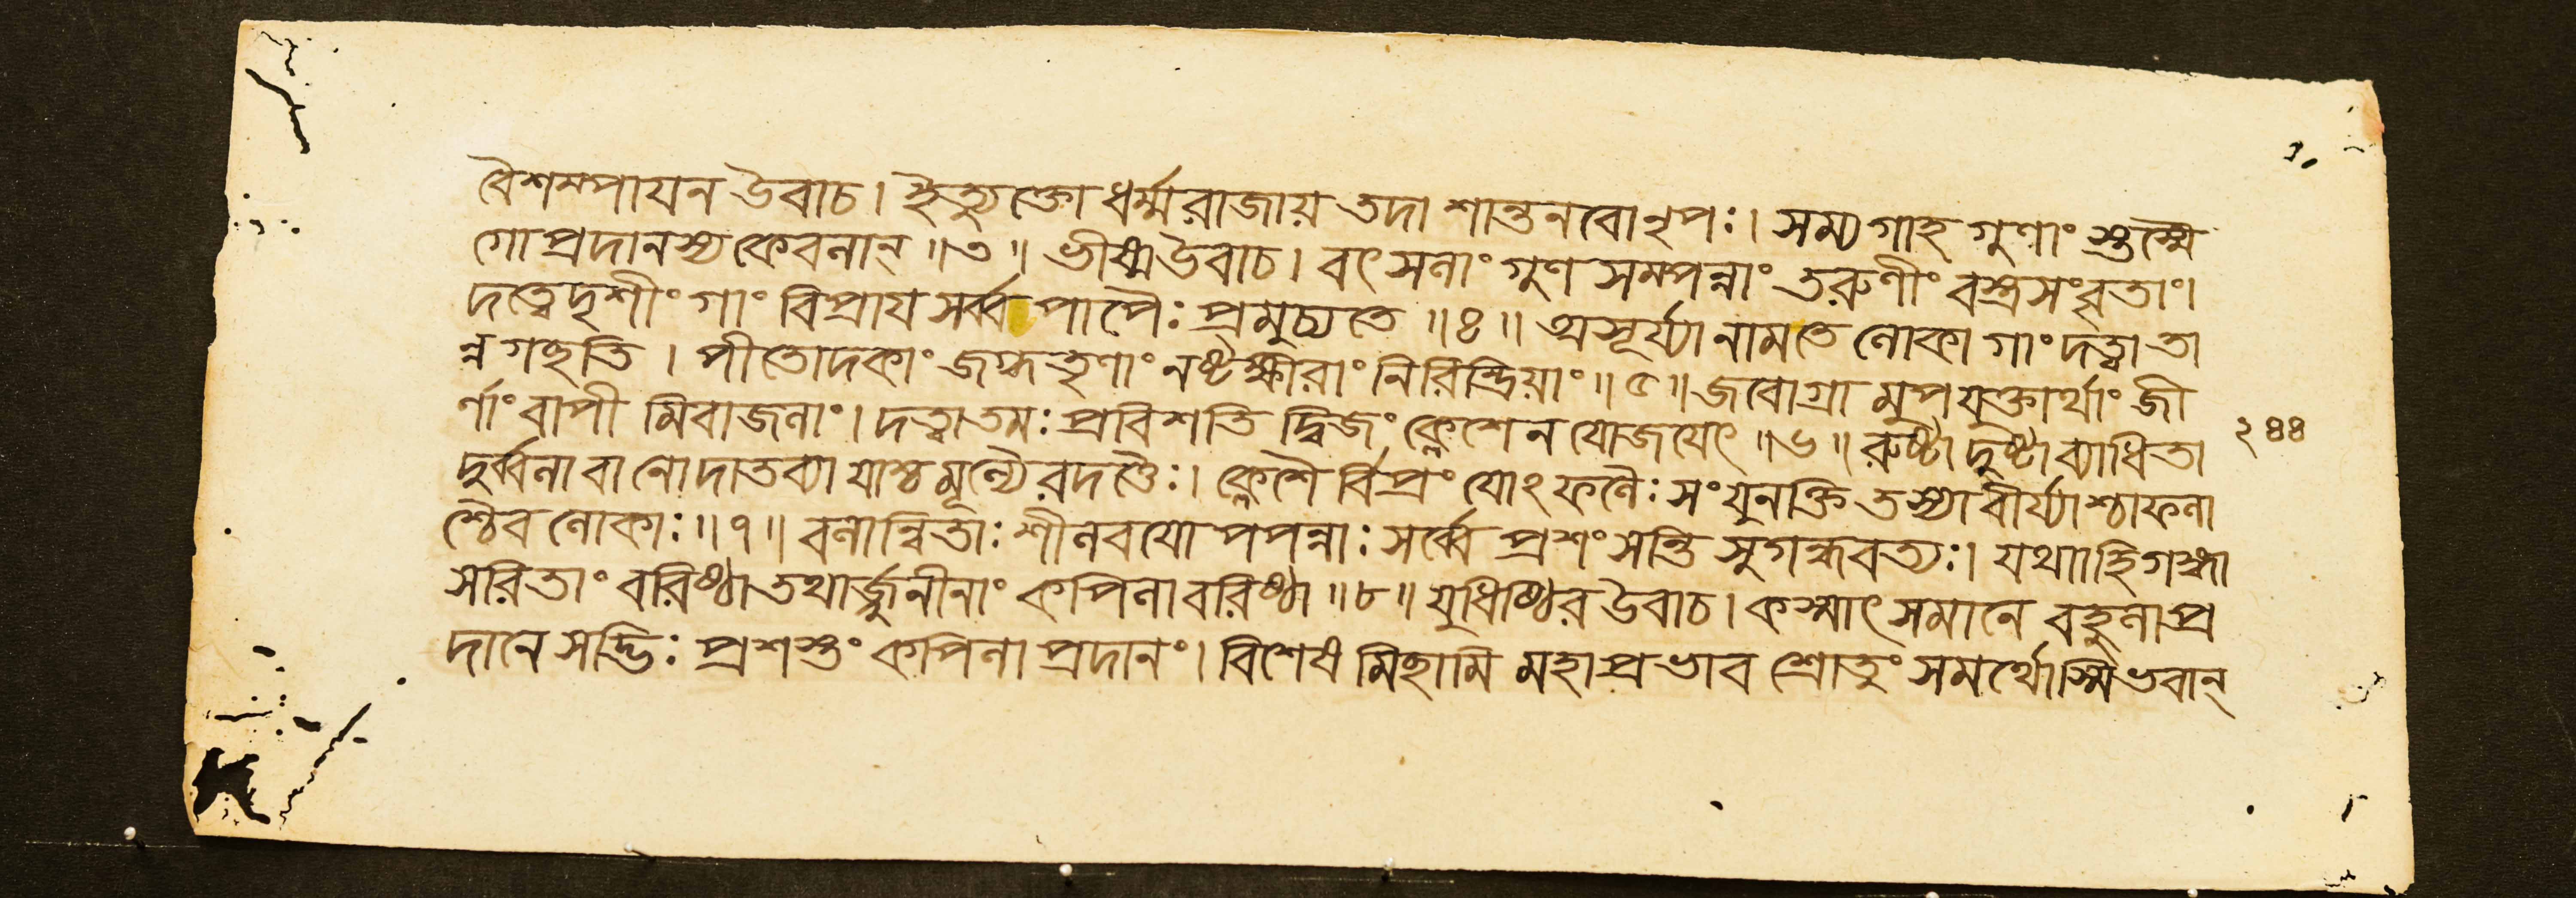 বৈশম্পায়ন উবাচ। ইত্যুক্তো ধর্ম্মরাজায় তদা শান্তনবোনৃপঃ। সম্যগাহ গুণাং স্তস্মৈ
গোপ্রদানস্য কেবলান্॥৩॥ ভীষ্মউবাচ। বৎসলাং গুণসম্পন্নাং তরুণীং বস্ত্রসংবৃতাং।
দত্ত্বেদৃশীং গাং বিপ্রায় সর্ব্বপাপৈঃ প্রমুচ্যতে॥৪॥ অসূর্য্যানামতে লোকা গাং দত্বাতা
ন্ন গচ্ছতি। পীতোদকাং জগ্ধতৃণাং নষ্টক্ষীরাং নিরিন্দ্রিয়াং॥৫॥ জরোগ্রামুপযুক্তার্থাং জী
র্ণাং বাপীমিবাজলাং। দত্বাতমঃ প্রবিশতি দ্বিজং ক্লেশেন যোজয়েৎ॥৬॥ রুষ্টা দুষ্টা ব্যাধিতা
দুর্ব্বলাবা নোদাতব্যা যাশ্চমূল্যৈরদত্তৈঃ। ক্লেশৈর্বিপ্রং যোঽফলৈঃ সংযুনক্তি তস্যাবীর্য্যাশ্চাফলা
শ্চৈব লোকাঃ॥৭॥ বলান্বিতাঃ শীলবয়োপপন্নাঃ সর্ব্বে প্রশংসন্তি সুগন্ধবত্যঃ। যথাহিগঙ্গা
সরিতাং বরিষ্ঠা তথার্জ্জুনীনাং কপিলাবরিষ্ঠা॥৮॥ যুধিষ্ঠির উবাচ। কস্মাৎ সমানে বহুলাপ্র
দানে সদ্ভিঃ প্রশস্তং কপিলাপ্রদানং। বিশেষমিছামি মহাপ্রভাব শ্রোতুং সমর্থোস্মিভবান্
২৪৪